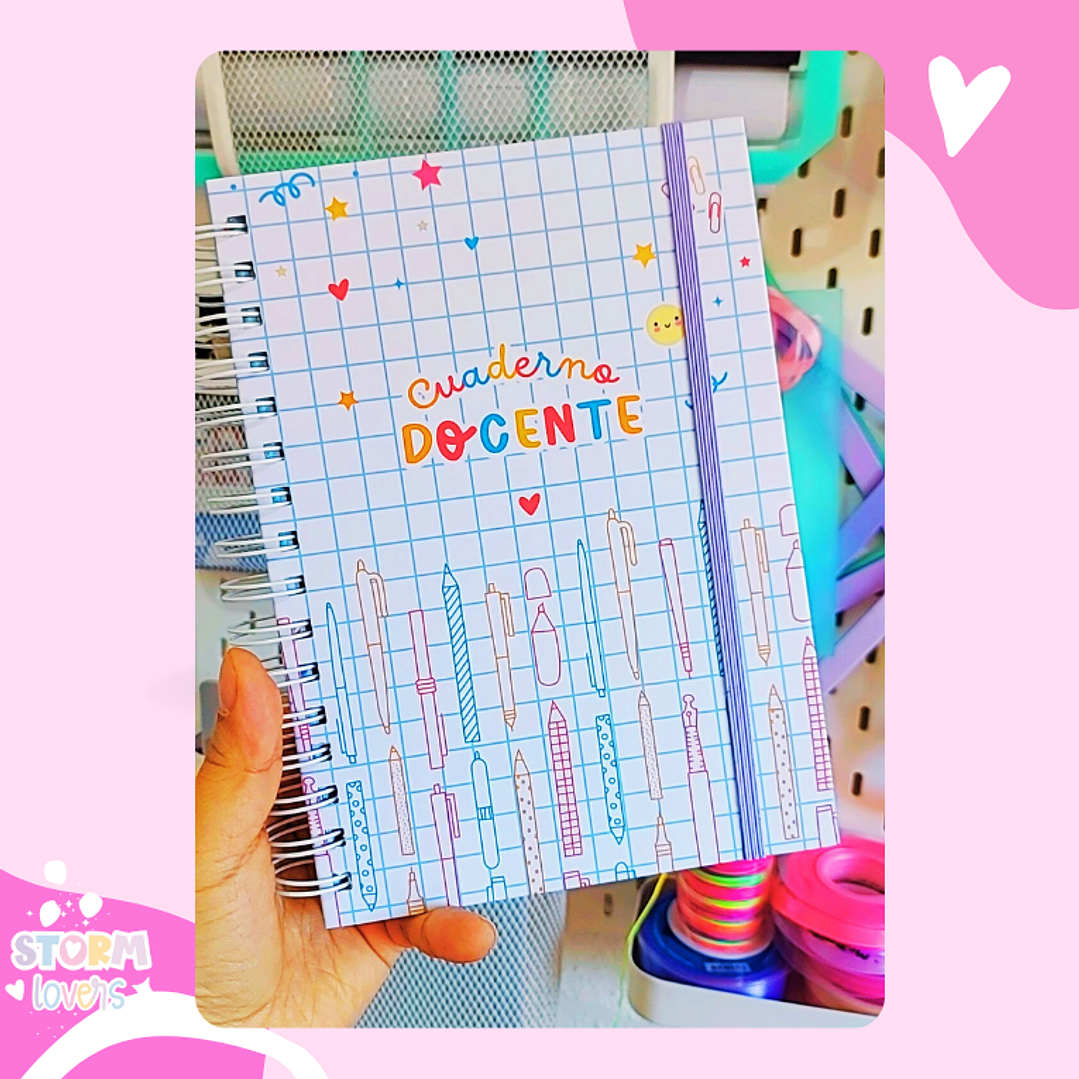 Cuaderno
DOCENTE
STORM
lovers